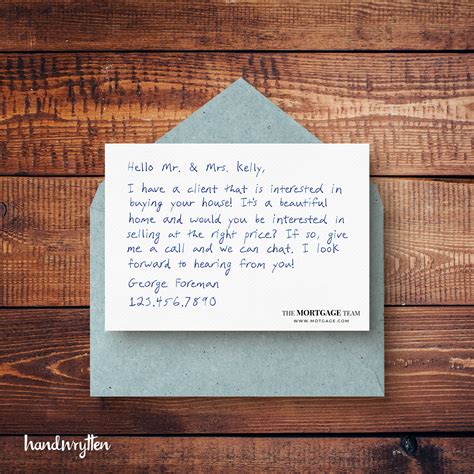 Hello Mr. & Mrs. Kelly,
I have a client that is interested in
buying your house! It's a beautiful
home and would you be interested in
selling at the right price? If so, give
me a call and we can chat. I look
forward to hearing from you!
George Foreman
123.456.7890
THE MORTGAGE TEAM
WWW.MOTGAGE.COM
handwrytten